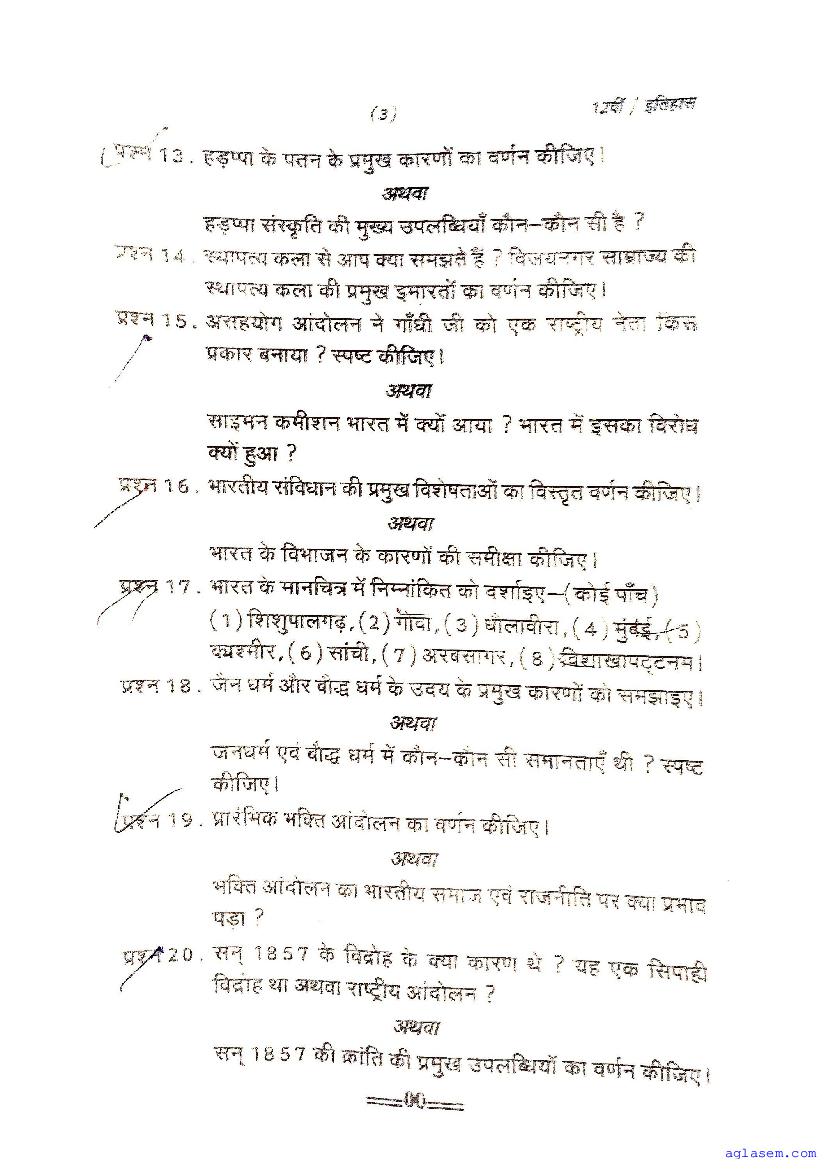 (3)
12वीं / इतिहास
प्रश्न 13. हड़प्पा के पतन के प्रमुख कारणों का वर्णन कीजिए।
अथवा
हड़प्पा संस्कृति की मुख्य उपलब्धियाँ कौन-कौन सी है ?
प्रश्न 14. स्थापत्य कला से आप क्या समझते हैं ? विजयनगर साम्राज्य की
स्थापत्य कला की प्रमुख इमारतों का वर्णन कीजिए।
प्रश्न 15. असहयोग आंदोलन ने गाँधी जी को एक राष्ट्रीय नेता किस
प्रकार बनाया ? स्पष्ट कीजिए।
अथवा
साइमन कमीशन भारत में क्यों आया ? भारत में इसका विरोध
क्यों हुआ ?
प्रश्न 16. भारतीय संविधान की प्रमुख विशेषताओं का विस्तृत वर्णन कीजिए।
अथवा
भारत के विभाजन के कारणों की समीक्षा कीजिए।
प्रश्न 17. भारत के मानचित्र में निम्नांकित को दर्शाइए-(कोई पाँच)
(1) शिशुपालगढ़, (2) गोवा, (3) धोलावीरा, (4) मुंबई, (5)
कश्मीर, (6) सांची, (7) अरबसागर, (8) विशाखापट्टनम।
प्रश्न 18. जैन धर्म और बौद्ध धर्म के उदय के प्रमुख कारणों को समझाइए।
अथवा
जैनधर्म एवं बौद्ध धर्म में कौन-कौन सी समानताएँ थी ? स्पष्ट
कीजिए।
प्रश्न 19. प्रारंभिक भक्ति आंदोलन का वर्णन कीजिए।
अथवा
भक्ति आंदोलन का भारतीय समाज एवं राजनीति पर क्या प्रभाव
पड़ा ?
प्रश्न 20. सन् 1857 के विद्रोह के क्या कारण थे ? यह एक सिपाही
विद्रोह था अथवा राष्ट्रीय आंदोलन ?
अथवा
सन् 1857 की क्रांति की प्रमुख उपलब्धियों का वर्णन कीजिए।
==00==
aglasem.com